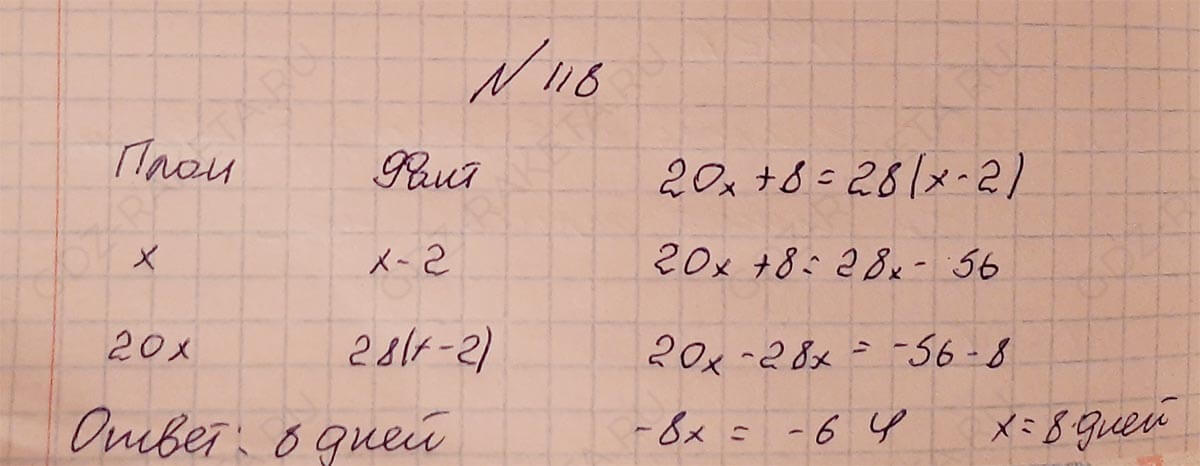 N 118
План Факт 20x + 8 = 28(x - 2)
x x - 2 20x + 8 = 28x - 56
20x 28(x - 2) 20x - 28x = -56 - 8
Ответ: 8 дней -8x = -64 x = 8 дней